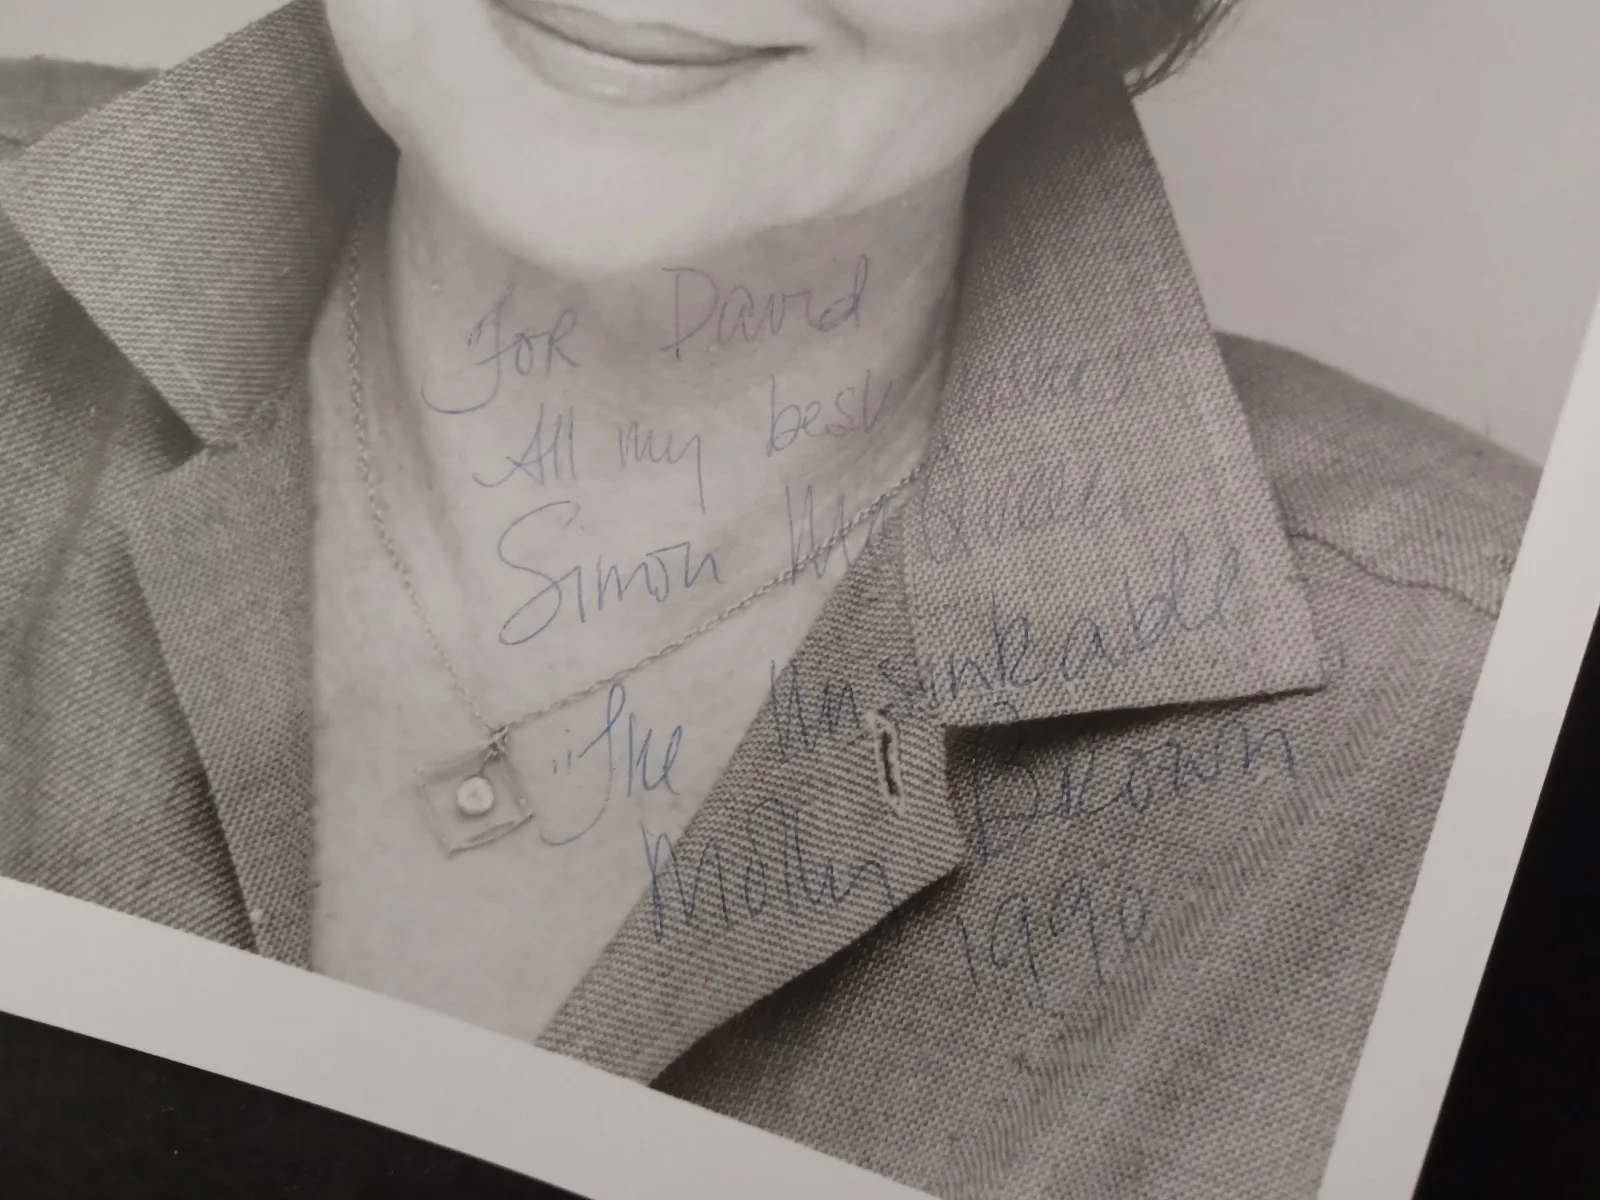 For David
All my best
Simon McQueen
"The Unsinkable
Molly Brown
1990